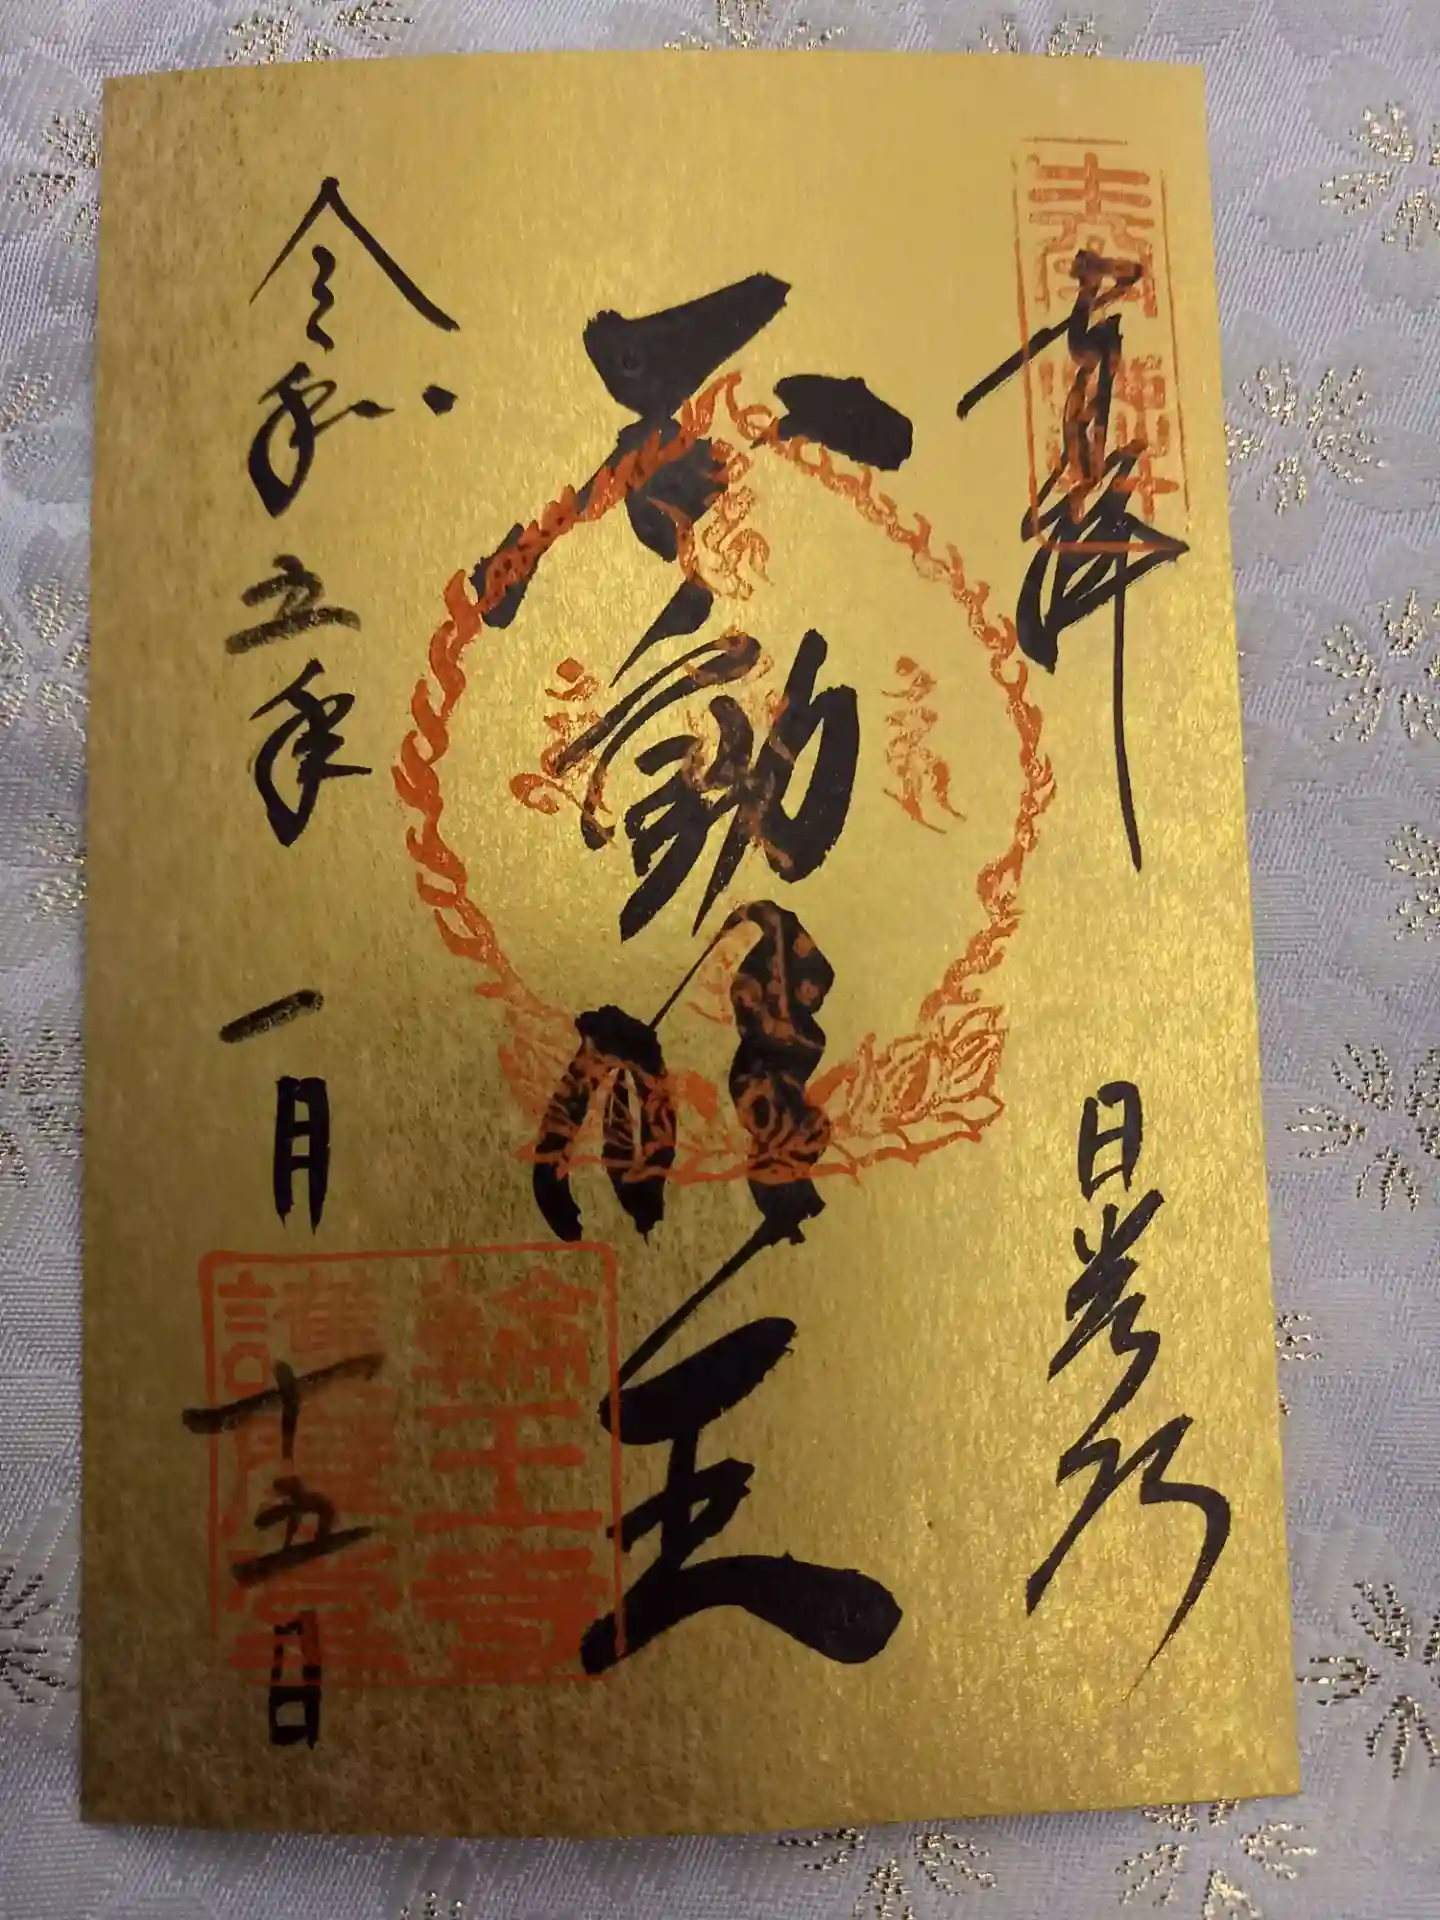 奉拝
日光山
不動明王
令和五年 一月 十五日
輪王寺
護摩堂